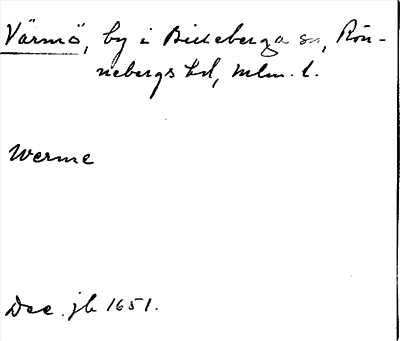 Värmö, by i Billeberga sn, Rön-
nebergs hd, Mlm. l.
Werme
Dec. jb 1651.